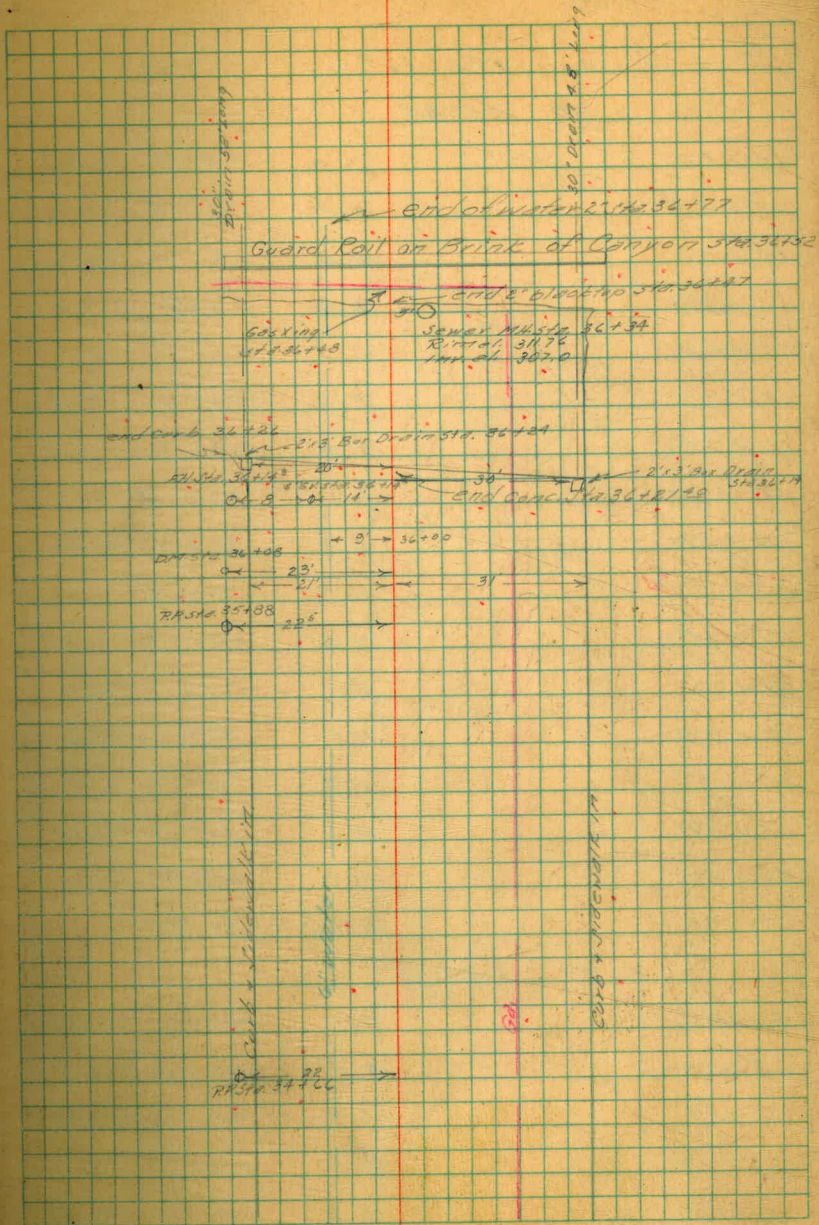 30" Drain 50' Long
30" Drain 48' Long
end of water 2" Sta. 36+77
Guard Rail on Brink of Canyon Sta. 36+52
end 2" blacktop Sta. 36+47
3'
Gas Xing
Sta. 36+48
Sewer M.H. Sta. 36+34
Rim el. 311.76
Inv. el. 307.0
end Curb 36+26
2'x3' Box Drain Sta. 36+24
20'
30'
2'x3' Box Drain
Sta. 36+19
8
14'
end Conc. Sta. 36+21
9' 36+00
Sta. 36+08
23'
21'
31'
P.P. Sta. 35+88
22⁵
Curb & Sidewalk in
6" Water
Gas
Curb & Sidewalk in
22
P.P. Sta. 34+66